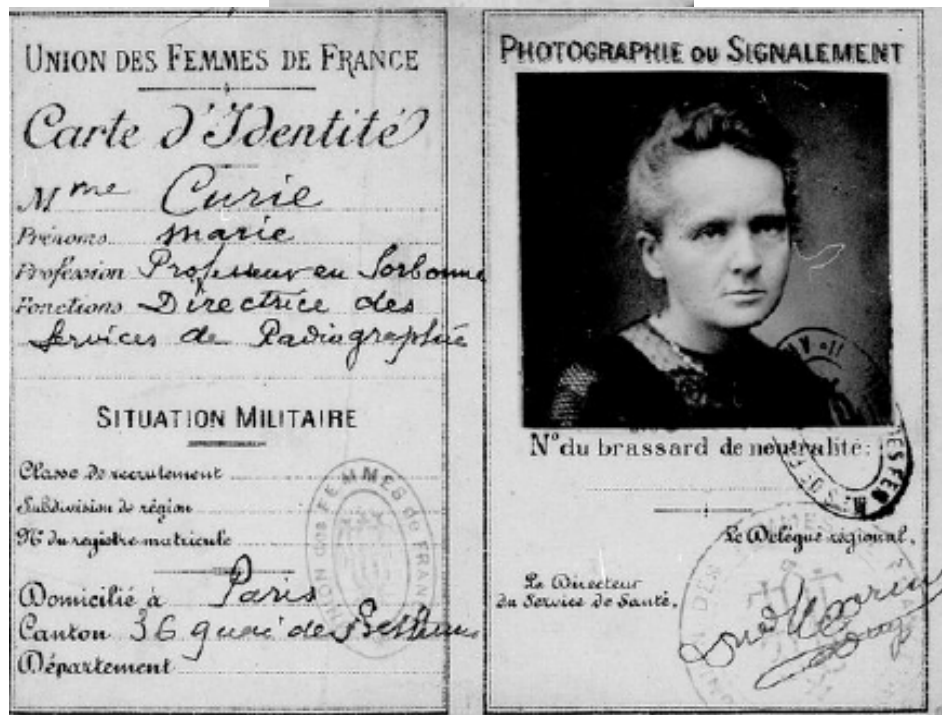 UNION DES FEMMES DE FRANCE
Carte d'Identité
Mme Curie
Prénoms Marie
Profession Professeur en Sorbonne
Fonctions Directrice des
Services de Radiographie
SITUATION MILITAIRE
Classe de recrutement
Subdivision de région
No du registre matricule
Domicilié à Paris
Canton 36 quai de Béthune
Département
UNION des FEMMES de FRANCE
PHOTOGRAPHIE OU SIGNALEMENT
No du brassard de neutralité:
Le Délégué régional,
Le Directeur
du Service de Santé,